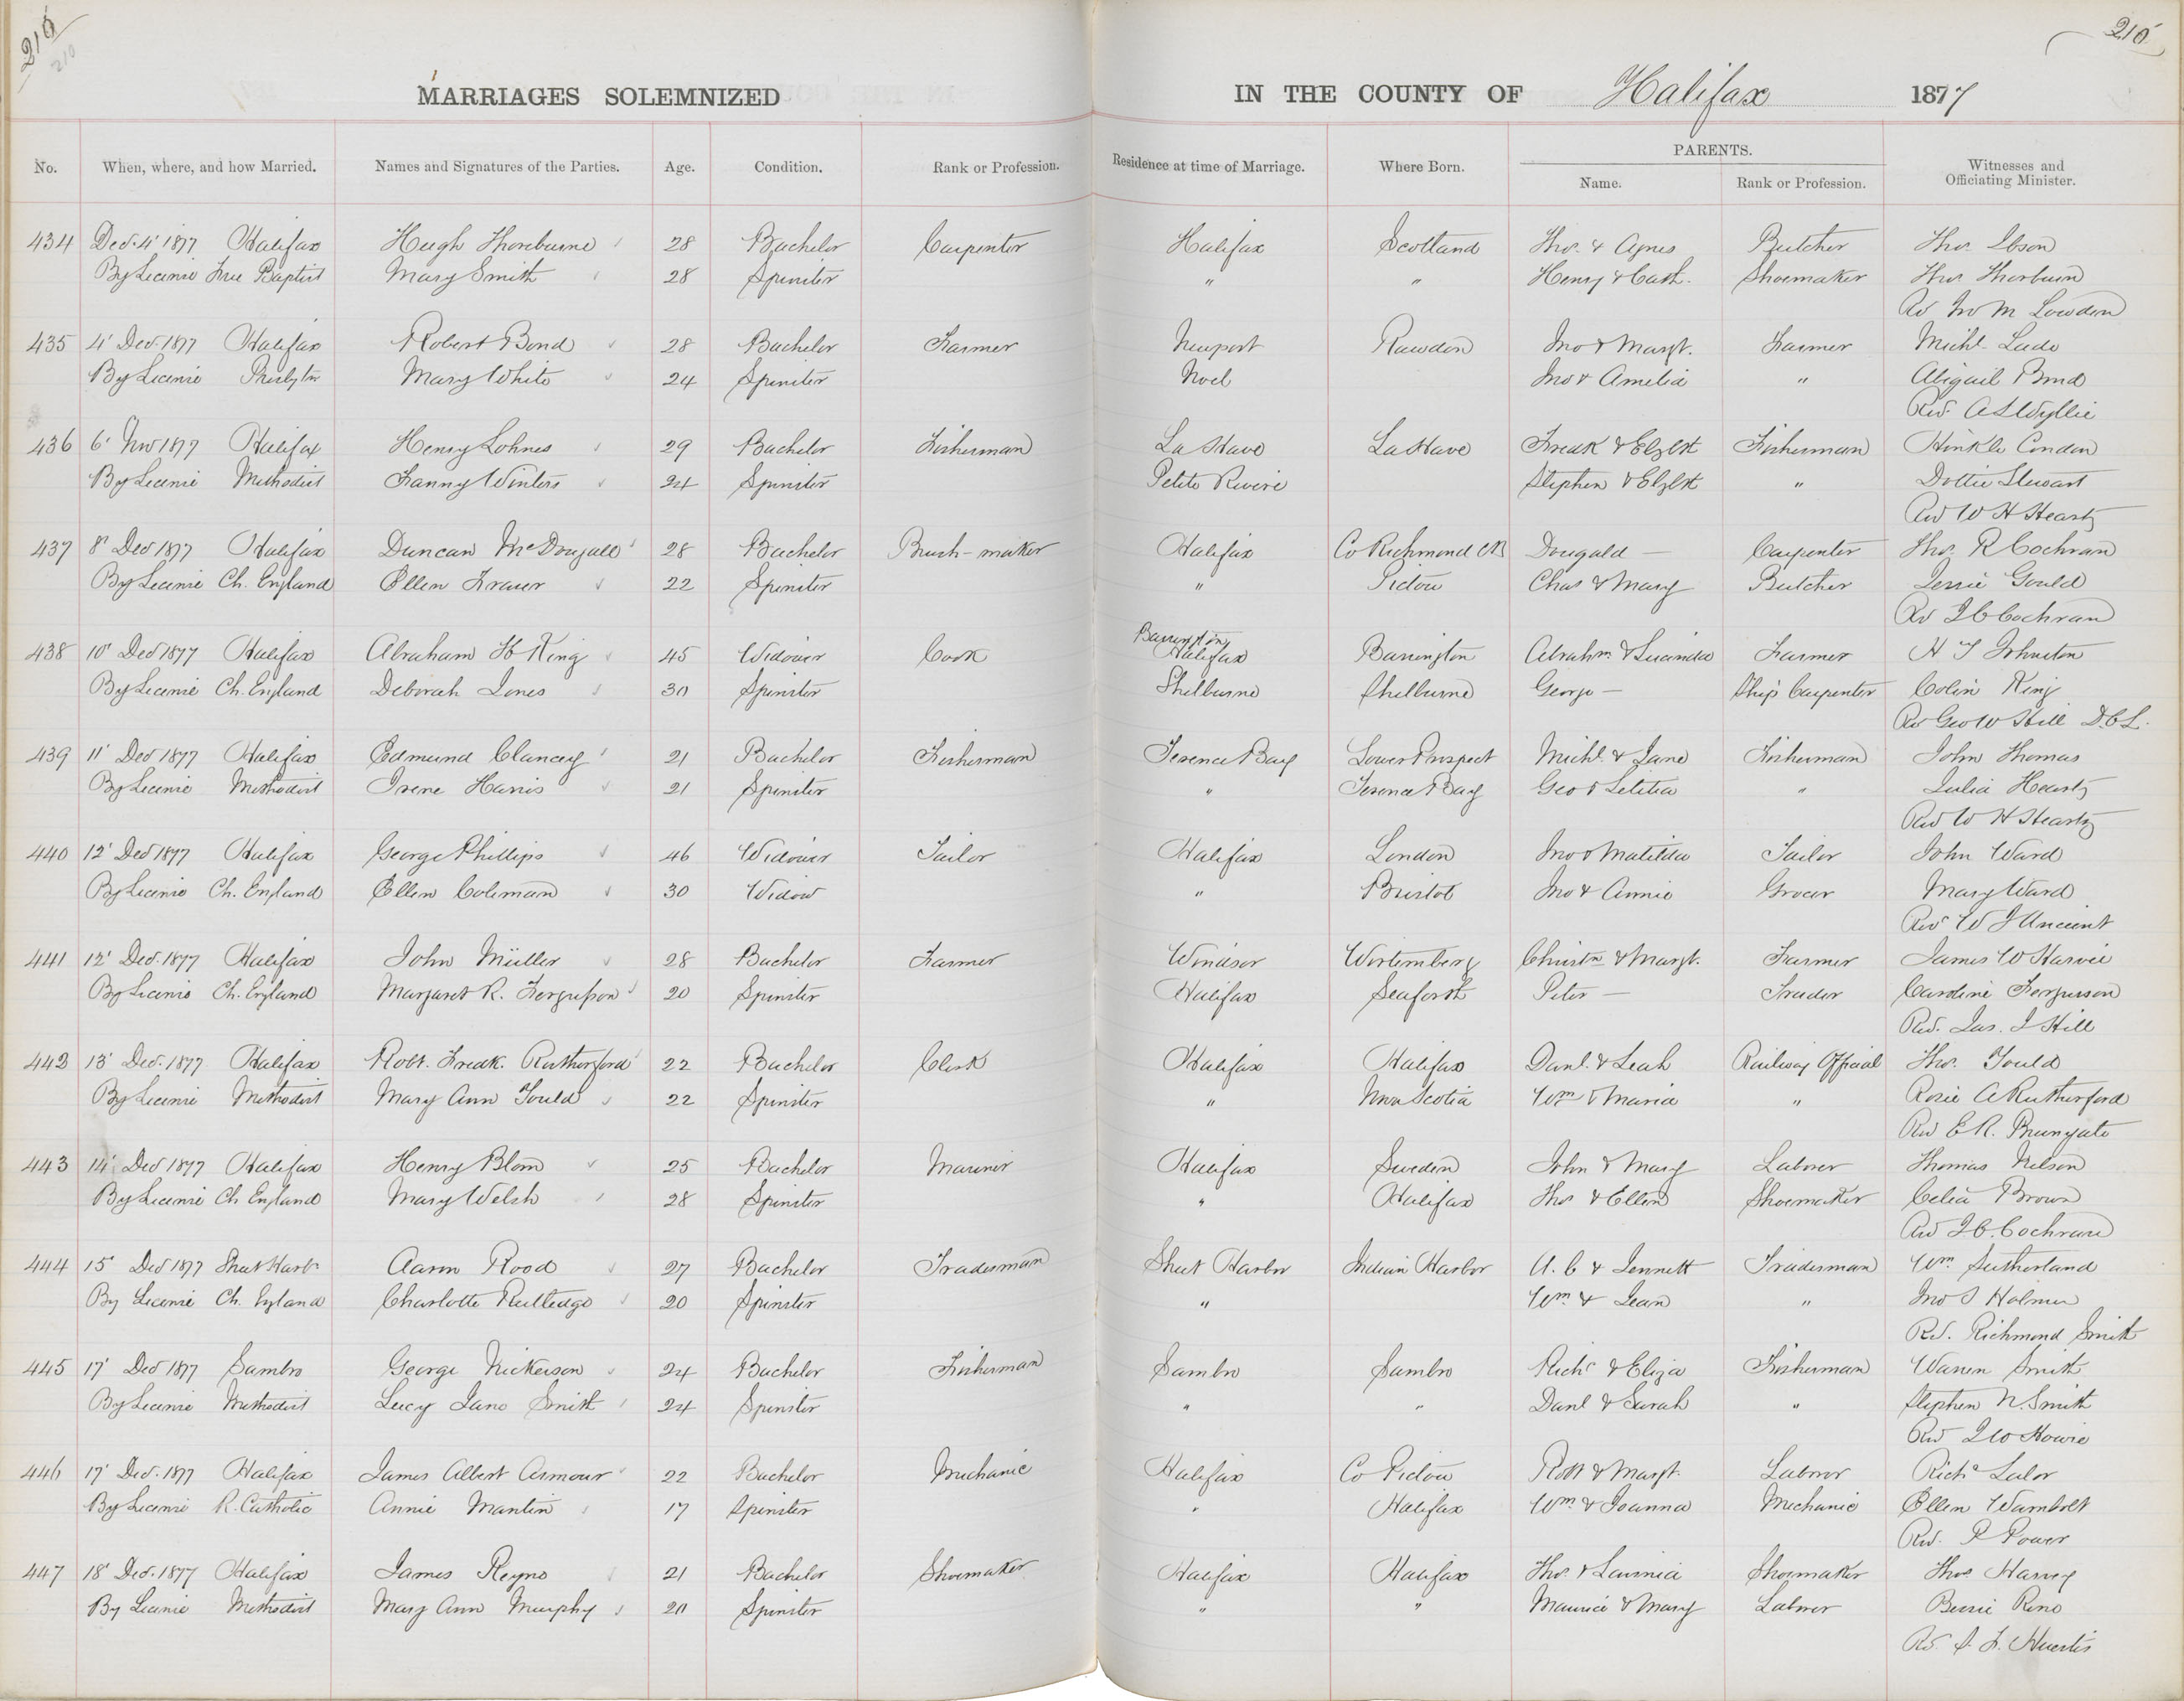 210
210
210
MARRIAGES SOLEMNIZED IN THE COUNTY OF Halifax 1877
No. When, where, and how Married. Names and Signatures of the Parties. Age. Condition. Rank or Profession. Residence at time of Marriage. Where Born. PARENTS. Name. Rank or Profession. Witnesses and Officiating Minister.
434 Dec. 4' 1877 Halifax Hugh Thorburne 28 Bachelor Carpenter Halifax Scotland Thos. & Agnes Butcher Thos. Ibson
By License Free Baptist Mary Smith 28 Spinster " " Henry & Cath. Shoemaker Thos Thorburn
Rev Jno M Lowden
435 4' Dec. 1877 Halifax Robert Bond 28 Bachelor Farmer Newport Rawdon Jno & Margt. Farmer Michl.
By License Presbytn Mary White 24 Spinster Noel Jno & Amelia " Abigail Bond
Rev. A S Wyllie
436 6' Nov 1877 Halifax Henry Lohnes 29 Bachelor Fisherman La Have La Have Fredk & Elzbt Fisherman Hinkle Condon
By License Methodist Fanny Winters 24 Spinster Petite Riviere Stephen & Elzbt " Dottie Stewart
Rev W H Heartz
437 8' Dec 1877 Halifax Duncan McDougall 28 Bachelor Brush-maker Halifax Co Richmond CB Dougald — Carpenter Thos. R Cochran
By License Ch. England Ellen Fraser 22 Spinster " Pictou Chas & Mary Butcher Jessie Gould
Rev J C Cochran
438 10' Dec 1877 Halifax Abraham H King 45 Widower Cook Barrington Halifax Barrington Abrahm. & Lucinda Farmer H T Johnston
By License Ch. England Deborah Jones 30 Spinster Shelburne Shelburne George — Ship Carpenter Colin King
Rev Geo W Hill D.C.L.
439 11' Dec 1877 Halifax Edmund Clancey 21 Bachelor Fisherman Terence Bay Lower Prospect Michl. & Jane Fisherman John Thomas
By License Methodist Irene Harris 21 Spinster " Terence Bay Geo & Letitia " Julia Heartz
Rev W H Heartz
440 12' Dec 1877 Halifax George Phillips 46 Widower Tailor Halifax London Jno & Matilda Tailor John Ward
By License Ch. England Ellen Coleman 30 Widow " Bristol Jno & Annie Grocer Mary Ward
Rev W J Ancient
441 12' Dec. 1877 Halifax John Müller 28 Bachelor Farmer Windsor Wirtemberg Christn & Margt. Farmer James W Harvie
By License Ch. England Margaret R. Fergusson 20 Spinster Halifax Seaforth Peter — Trader Caroline Fergusson
Rev. Jas. J Hill
442 13' Dec. 1877 Halifax Robt. Fredk. Rutherford 22 Bachelor Clerk Halifax Halifax Danl. & Leah Railway Official Thos. Gould
By License Methodist Mary Ann Gould 22 Spinster " Nova Scotia Wm & Maria " Rosie A Rutherford
Rev E R. Brunyate
443 14' Dec 1877 Halifax Henry Blom 25 Bachelor Mariner Halifax Sweden John & Mary Laborer Thomas Nelson
By License Ch England Mary Welsh 28 Spinster " Halifax Thos & Ellen Shoemaker Celia Brown
Rev J C. Cochrane
444 15' Dec 1877 Sheet Harbr Aaron Rood 27 Bachelor Tradesman Sheet Harbor Indian Harbor A. C & Jennett Tradesman Wm. Sutherland
By License Ch. England Charlotte Rutledge 20 Spinster " Wm. & Jean " Jno S Holmes
Rev. Richmond Smith
445 17' Dec 1877 Sambro George Nickerson 24 Bachelor Fisherman Sambro Sambro Richd & Eliza Fisherman Warren Smith
By License Methodist Lucy Jane Smith 24 Spinster " " Danl & Sarah " Stephen N. Smith
Rev J W Howie
446 17' Dec. 1877 Halifax James Albert Armour 22 Bachelor Mechanic Halifax Co Pictou Robt & Margt. Laborer Richd Lalor
By License R. Catholic Annie Mantin 17 Spinster " Halifax Wm & Joanna Mechanic Ellen Wambolt
Rev. P Power
447 18' Dec. 1877 Halifax James Reyno 21 Bachelor Shoemaker Halifax Halifax Thos. & Lavinia Shoemaker Thos Harvey
By License Methodist Mary Ann Murphy 20 Spinster " " Maurice & Mary Laborer Bessie Reno
Rev. S. F. Huestis